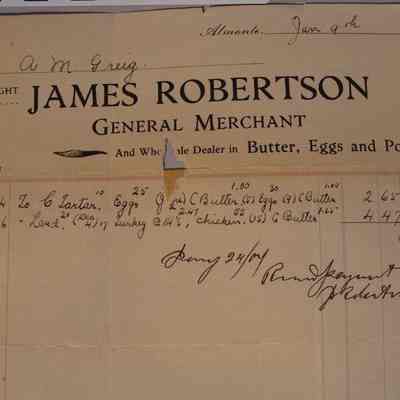 Almonte, Jan 9th
A M Greig.
GHT
JAMES ROBERTSON
GENERAL MERCHANT
And Who le Dealer in Butter, Eggs and Po
4 To C Tartar, 10 Eggs 25 C Butter 1.00 Eggs 30 C Butter 1.00 2 65
6 " Lard, 20 Turkey 2.47, Chicken, 55 C Butter 4 47
Jany 24/04
Recd payment
J Robertson